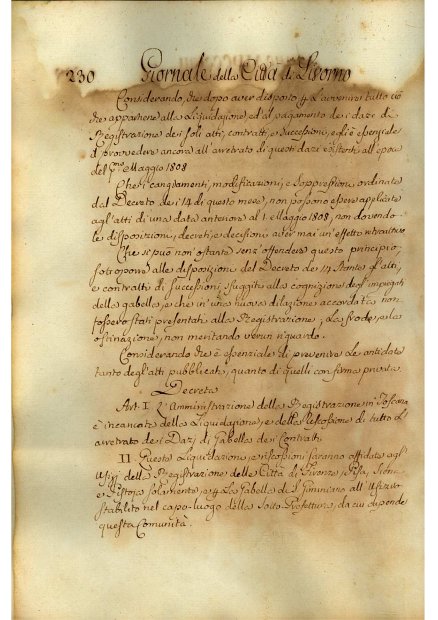 230 Giornale della Città di Livorno
Considerando, che dopo aver disposto p. l'avvenire tutto ciò
che appartiene alla Liquidazione, ed al pagamento dei dazi di
Registrazione dei soli atti, contratti, e successioni, egli è essenziale
di provvedere ancora all'arretrato di questi dazi esistente all'epoca
del p.mo Maggio 1808
Che i cangiamenti, modificazioni, e soppressioni ordinate
dal Decreto dei 14 di questo mese, non possono essere applicate
agl'atti di una data anteriore al 1. Maggio 1808, non dovendo
le disposizioni, decreti, e decisioni aver mai un'effetto retroattivo
Che si può non ostante senz'offendere questo principio,
sottoporre alle disposizioni del Decreto de 14 gl'atti,
e contratti di successioni, sfuggiti alla cognizione degl'impiegati
della gabella, e che in una nuova dilazione accordata non
fossero stati presentati alla Registrazione, la frode, e la
ostinazione, non meritando verun riguardo.
Considerando che è essenziale di prevenire le antidate
tanto degl'atti pubblicati, quanto di quelli con firma privata
Decreta
Art. I. L'Amministrazione della Registrazione in Toscana
è incaricata della Liquidazione, e della Percossione di tutto l'
arretrato dei Dazj di Gabella dei Contratti,
II. Queste Liquidazioni, e riscossioni saranno affidate agl'
Ufizj della Registrazione delle Città di Firenze, Pisa, Siena,
e Pistoja solamente, e p. la Gabella di S. Geminiano all'Ufizio
stabilito nel capo-luogo della Sotto-Prefettura, da cui dipende
questa Comunità.